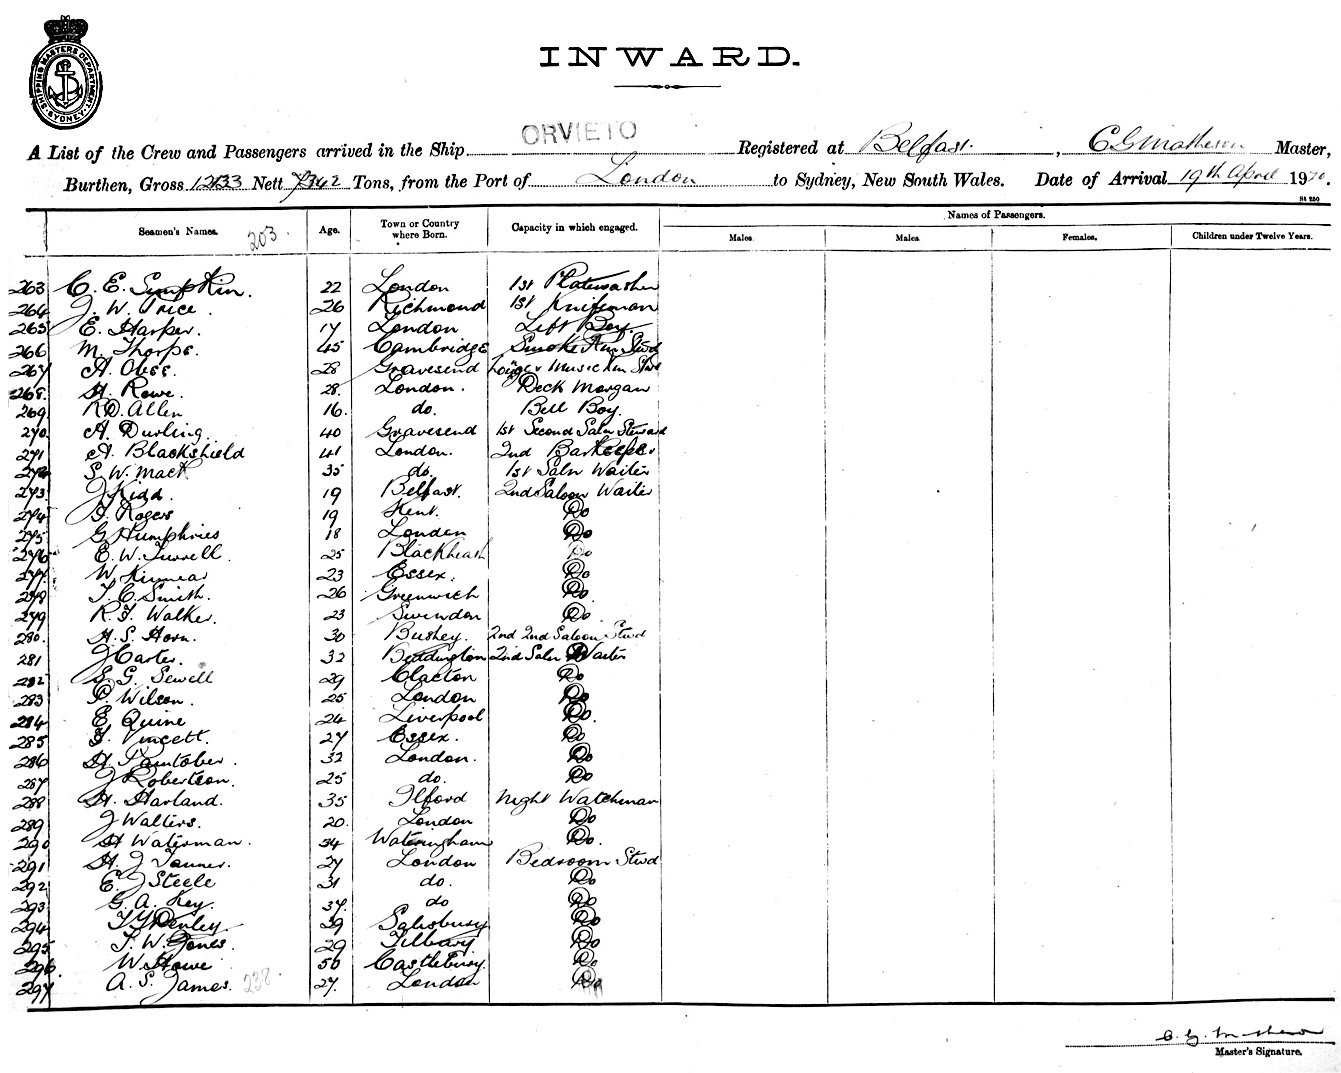 SHIPPING MASTERS DEPARTMENT SYDNEY
INWARD.
A List of the Crew and Passengers arrived in the Ship ORVIETO Registered at Belfast. , C G Matheson Master,
Burthen, Gross 12133 Nett Tons, from the Port of London to Sydney, New South Wales. Date of Arrival 19th April 19
Seamen's Names. 203. Age. Town or Country where Born. Capacity in which engaged. Names of Passengers.
Males. Males. Females. Children under Twelve Years.
263 C. E. Simpkin. 22 London 1st Platewasher
264 J. W. Price. 26 Richmond 1st Knifeman
265 E. Harper. 17 London Lift Boy.
266 M. Thorpe. 45 Cambridge Smoke Rm Stwd
267 A. 28 Gravesend Music Rm
268. H. Rowe. 28. London. Deck Morgan
269 R D. Allen 16. do. Bell Boy.
270. A. Durling. 40 Gravesend 1st Second Saln Steward
271 A. Blackshield 41 London. 2nd Barkeeper
272 S. W. Mack 35 do. 1st Saln Waiter
273 J Kidd. 19 Belfast. 2nd Saloon Waiter
274 Rogers 19 Kent. Do
275 G Humphries 18 London Do
276 E. W. Turrell. 25 Blackheath Do
277. W. Kinnear 23 Essex. Do
278 T. C. Smith. 26 Greenwich Do.
279 R. F. Walker. 23 Swindon Do.
280. H. S. Horn. 30 Bushey. 2nd 2nd Saloon Stwd
281 J Carter. 32 Beddington 2nd Saln Waiter
282 G. Sewell 29 Clacton Do
283 P. Wilson. 25 London Do
284 E. Quine 24 Liverpool Do.
285 Vincett. 27 Essex. Do
286 H. Pantober. 32 London. Do
287 J Robertson. 25 do. Do
288 H. Harland. 35 Ilford Night Watchman
289 J Walters. 20. London Do
290 H Waterman. 34 Wateringham Do.
291 H. J Tanner. 27 London Bedroom Stwd
292 E. J Steele 31 do. Do
293 G. A. Key. 37. do Do
294 Henley 39 Salisbury Do
295 T. W. Jones. 29 Tilbury Do
296. W. Howe 50 Castlebury. Do
297 A. S. James. 238. 27. London Do
C. G. Matheson
Master's Signature.